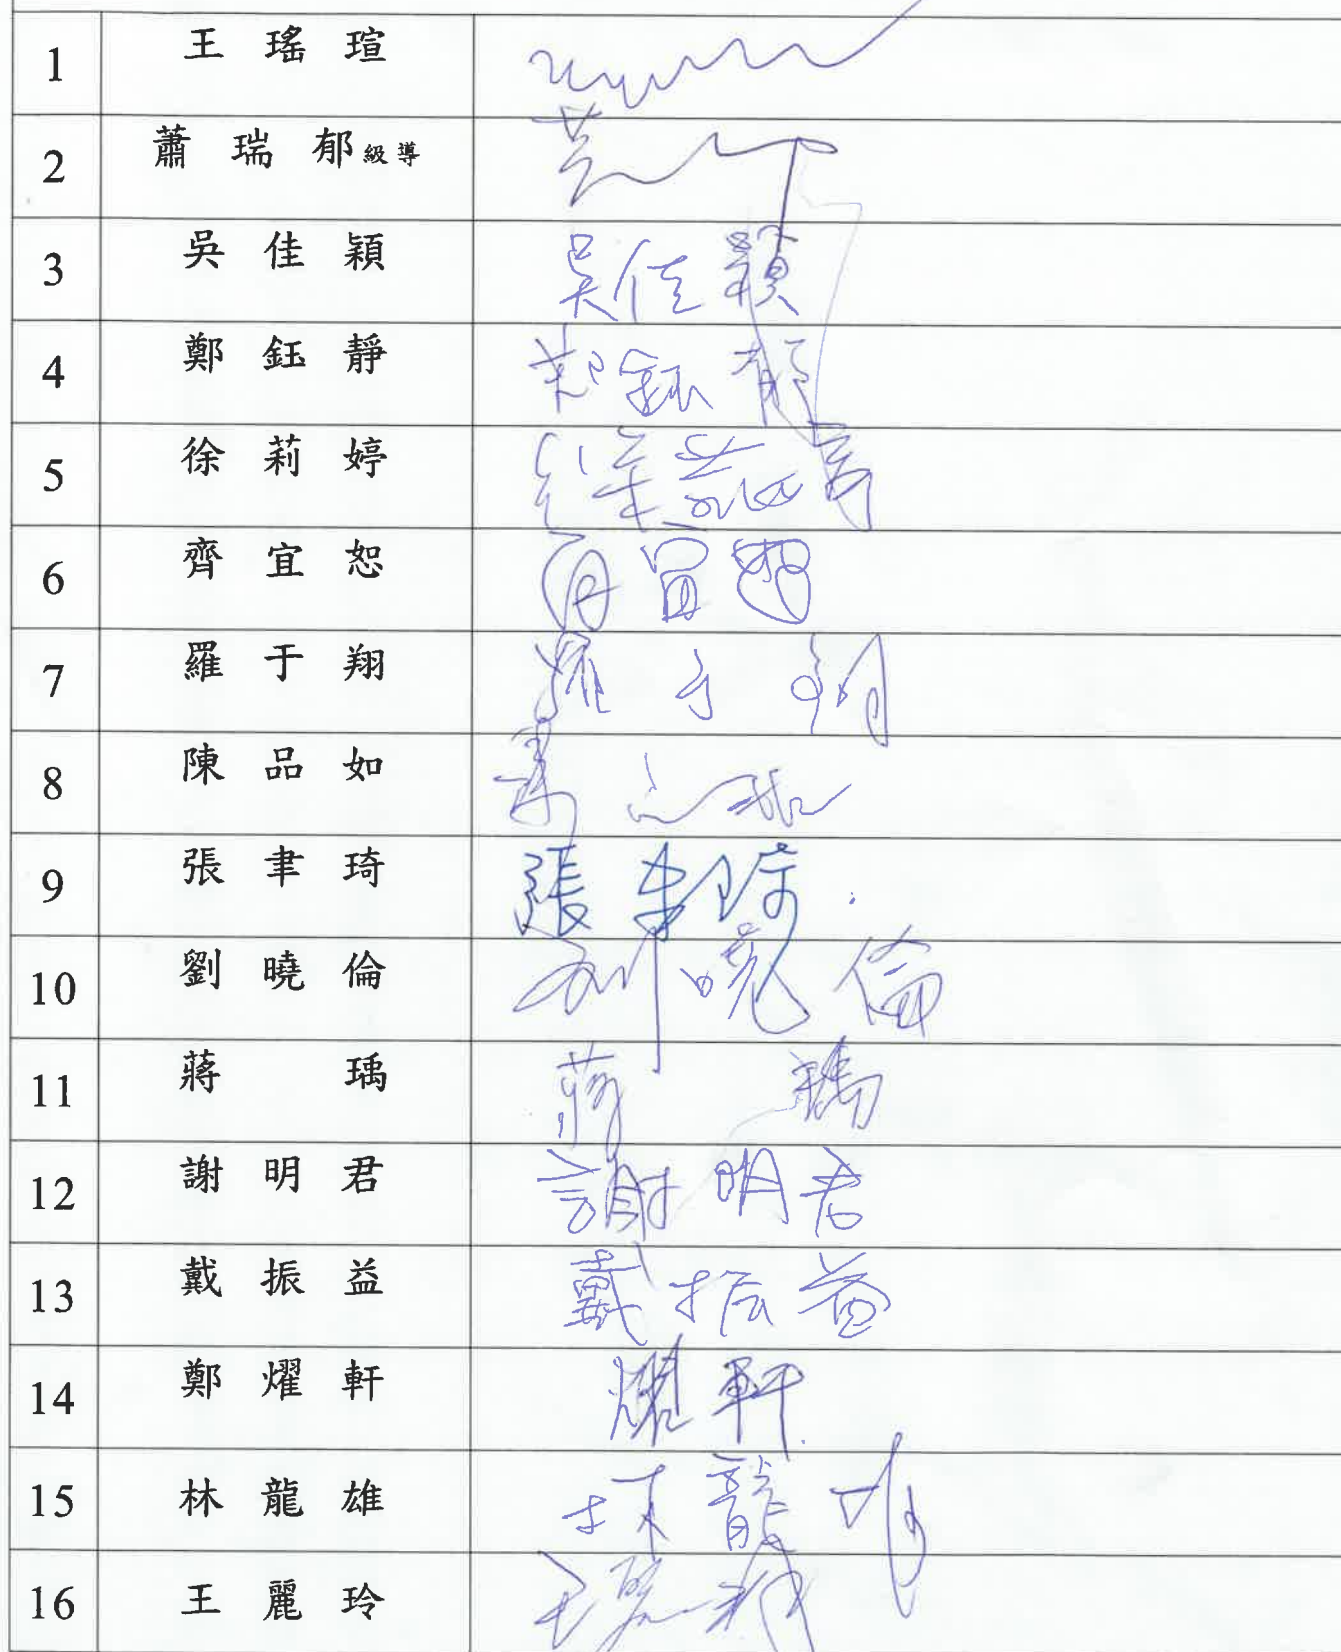 1 王瑤瑄
2 蕭瑞郁級導
3 吳佳穎 吳佳穎
4 鄭鈺靜 鄭鈺靜
5 徐莉婷 徐莉婷
6 齊宜恕
7 羅于翔 羅于翔
8 陳品如 陳品如
9 張聿琦 張聿琦
10 劉曉倫 刘曉倫
11 蔣瑀 蔣瑀
12 謝明君 謝明君
13 戴振益 戴振益
14 鄭燿軒 燿軒
15 林龍雄 林龍雄
16 王麗玲